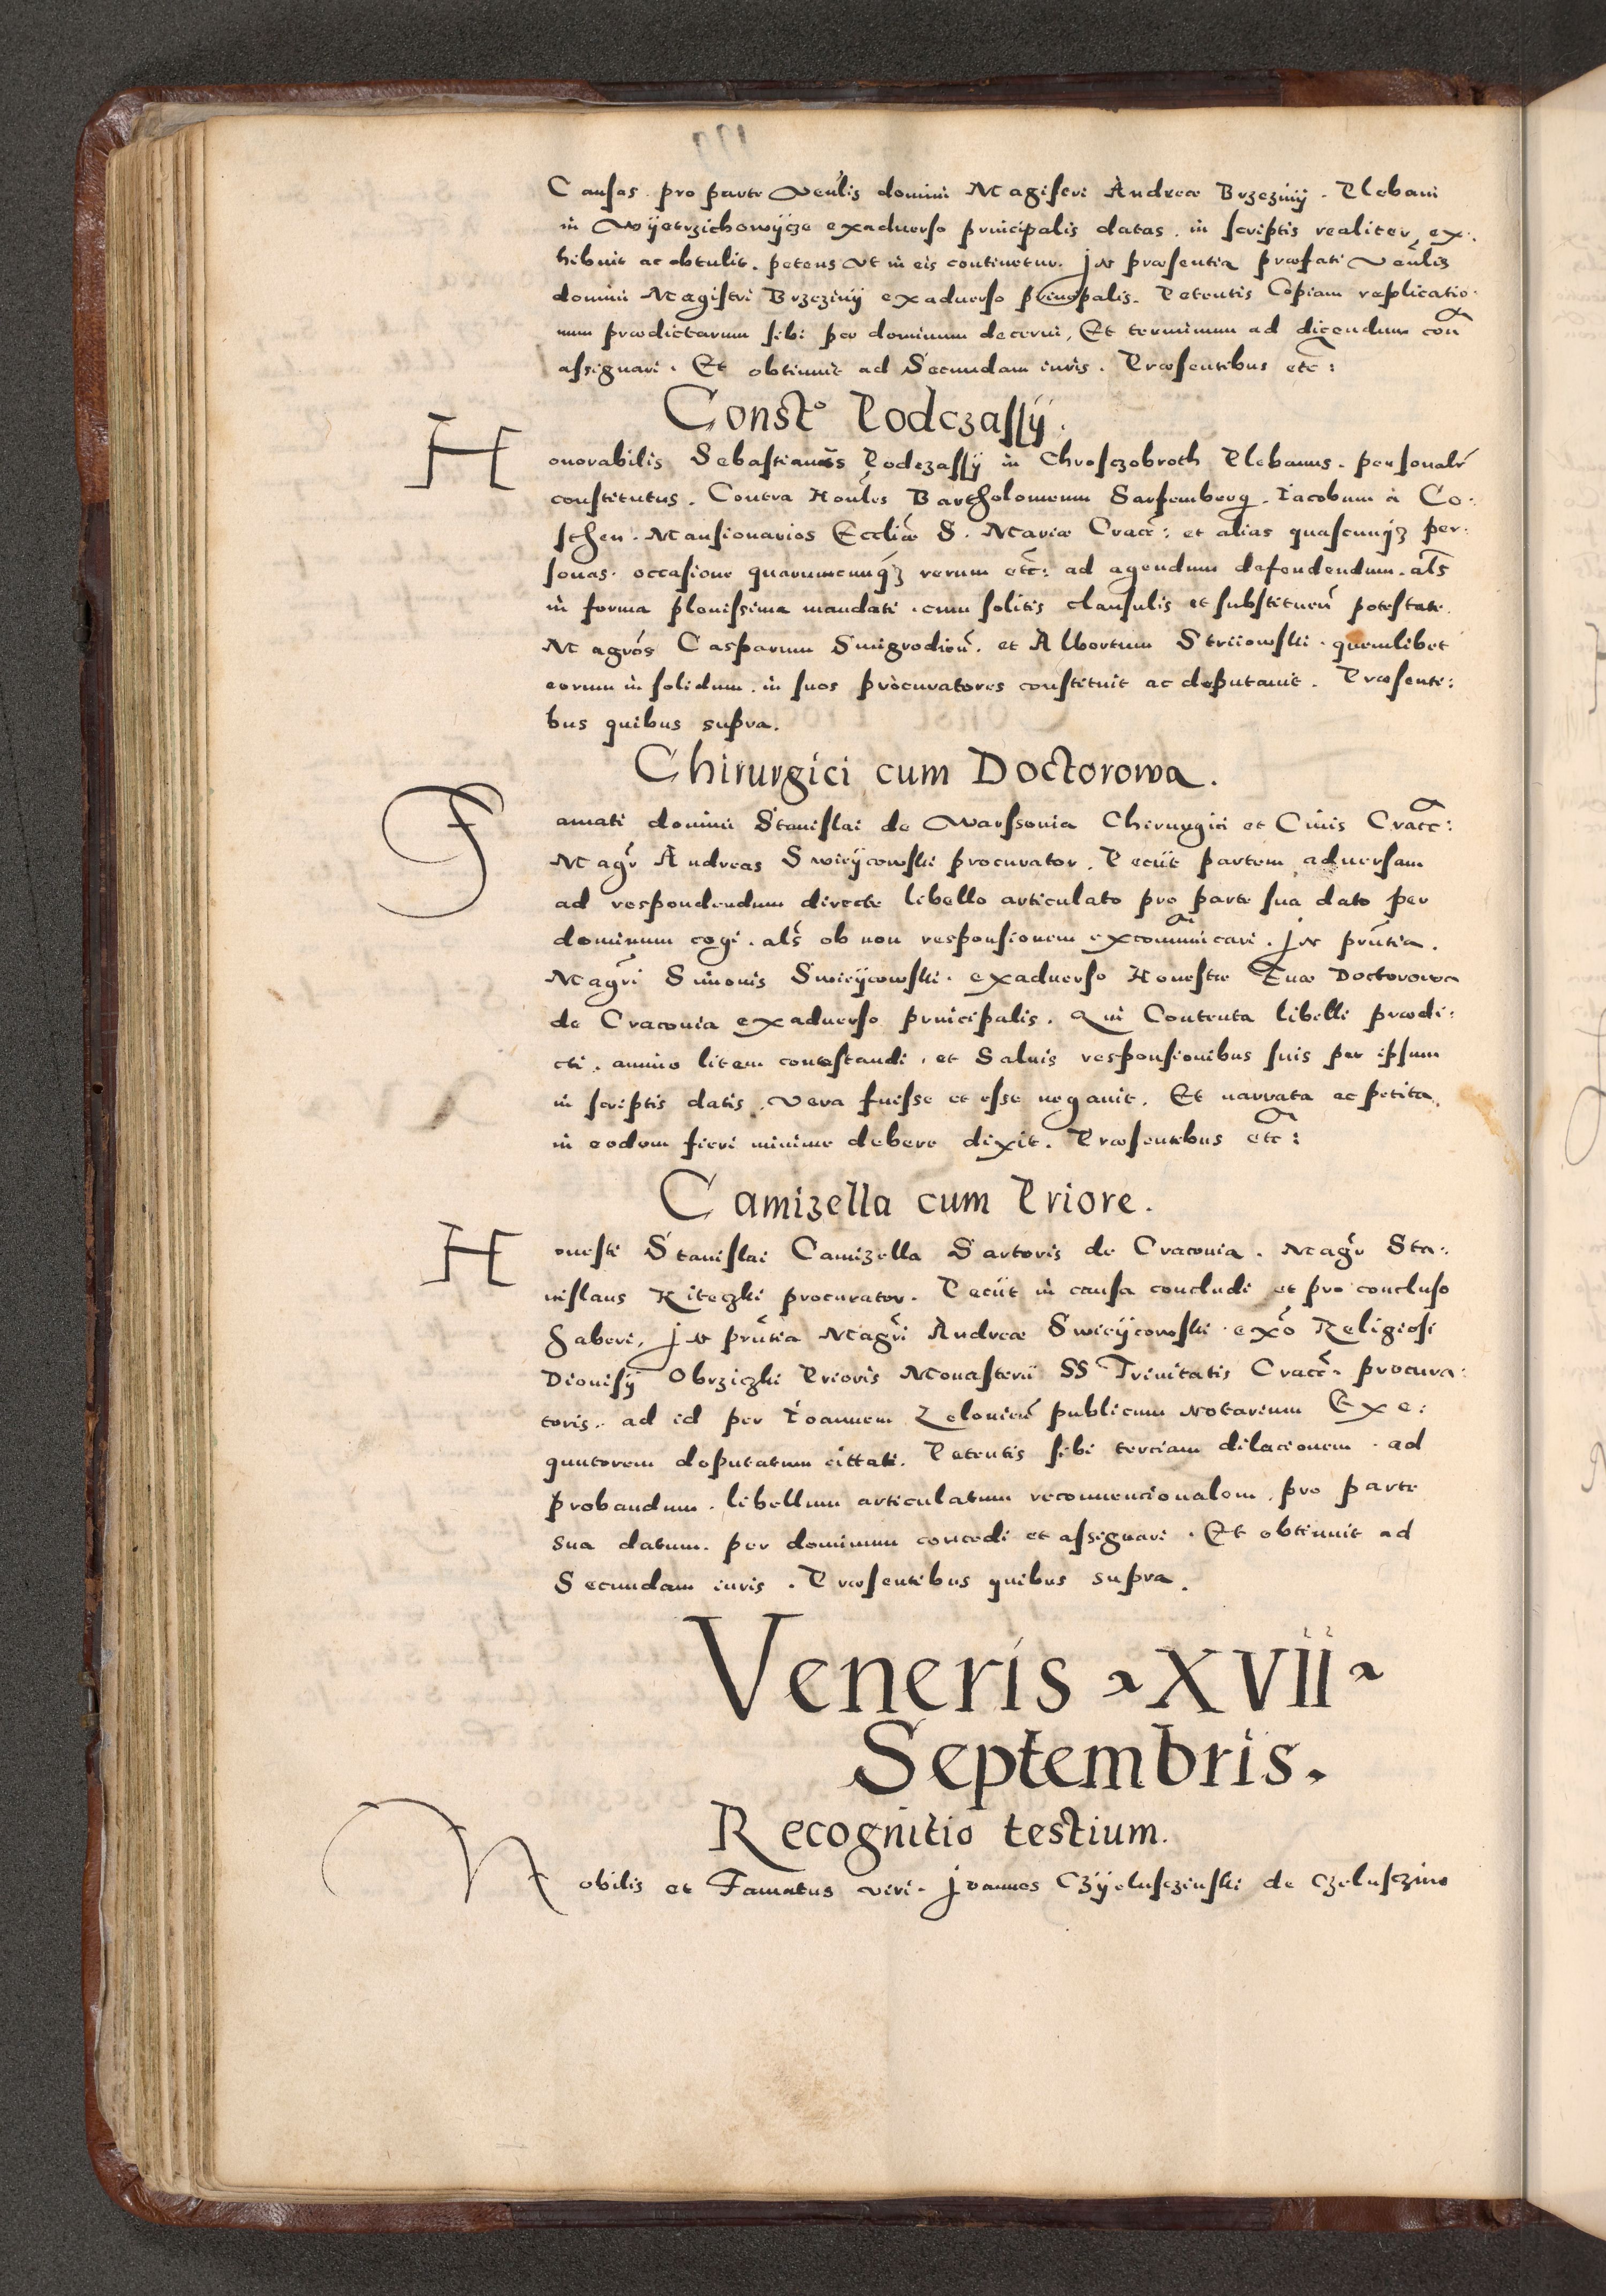 Causas pro parte Venlis domini Magistri Andreæ Brzezinÿ. Plebani
in Wÿetrzichowÿcze exaduerso principalis datas. in scriptis realiter ex:
hibuit ac obtulit. petens vt in eis continetur. In præsentia præfati Venlis
domini Magistri Brzezinÿ exaduerso principalis. Petentis Copiam replicatio:
num prædictarum sibi per dominum decerni, Et terminum ad dicendum con
assignari. Et obtinuit ad Secundam iuris. Præsentibus etc:
Const° Podczassÿ.
Honorabilis Sebastianus Podczassÿ in Chrosczobroth Plebanus. personalr
constitutus. Contra Honles Bartholomeum Sarpemberg. Iacobum à Co:
sthen. Mansionarios Eccliæ S. Mariæ Cracc: et alias quascunqz per:
sonas. occasione quarumcunqz rerum etc: ad agendum defendendum. als
in forma plenissima mandati. cum solitis clausulis et substituen potestate.
Magros Casparum Smigrodien. et Albertum Striiowski. quemlibet
eorum in solidum. in suos procuratores constituit ac deputauit. Præsenti:
bus quibus supra.
Chirurgici cum Doctorowa.
Famati domini Stanislai de Warssouia Chirurgici et Ciuis Cracc:
Magr Andreas Swirycowski procurator. Peciit partem aduersam
ad respondendum directe libello articulato pro parte sua dato per
dominum cogi. als ob non responsionem excommunicari. In prntia.
Magri Simonis Swirycowski. exaduerso Honestæ Euæ Doctorowa
de Cracouia exaduerso principalis. Qui Contenta libelli prædi:
cti. animo litem contestandi. et Saluis responsionibus suis per ipsum
in scriptis datis. vera fuisse et esse negauit. Et narrata ac petita
in eodem fieri minime debere dixit. Præsentibus etc:
Camizella cum Priore.
Honesti Stanislai Camizella Sartoris de Cracouia. Magr Sta:
nislaus Kiteczki procurator. Peciit in causa concludi et pro concluso
haberi, In prntia Magri Andreæ Swirycowski exo Religiosi
Dionisÿ Obrziczki Prioris Monasterii SS Trinitatis Cracc. procura:
toris. ad id per Ioannem Zelonien publicum Notarium Exe:
quutorem deputatum cittati. Petentis sibi terciam dilacionem. ad
probandum. libellum articulatum reconuencionalem. pro parte
sua datum. per dominum concedi et assignari. Et obtinuit ad
Secundam iuris. Præsentibus quibus supra.
Veneris XVII
Septembris.
Recognitio testium.
Nobilis et Famatus viri. Joannes Czÿelusczinski de Czelusczino